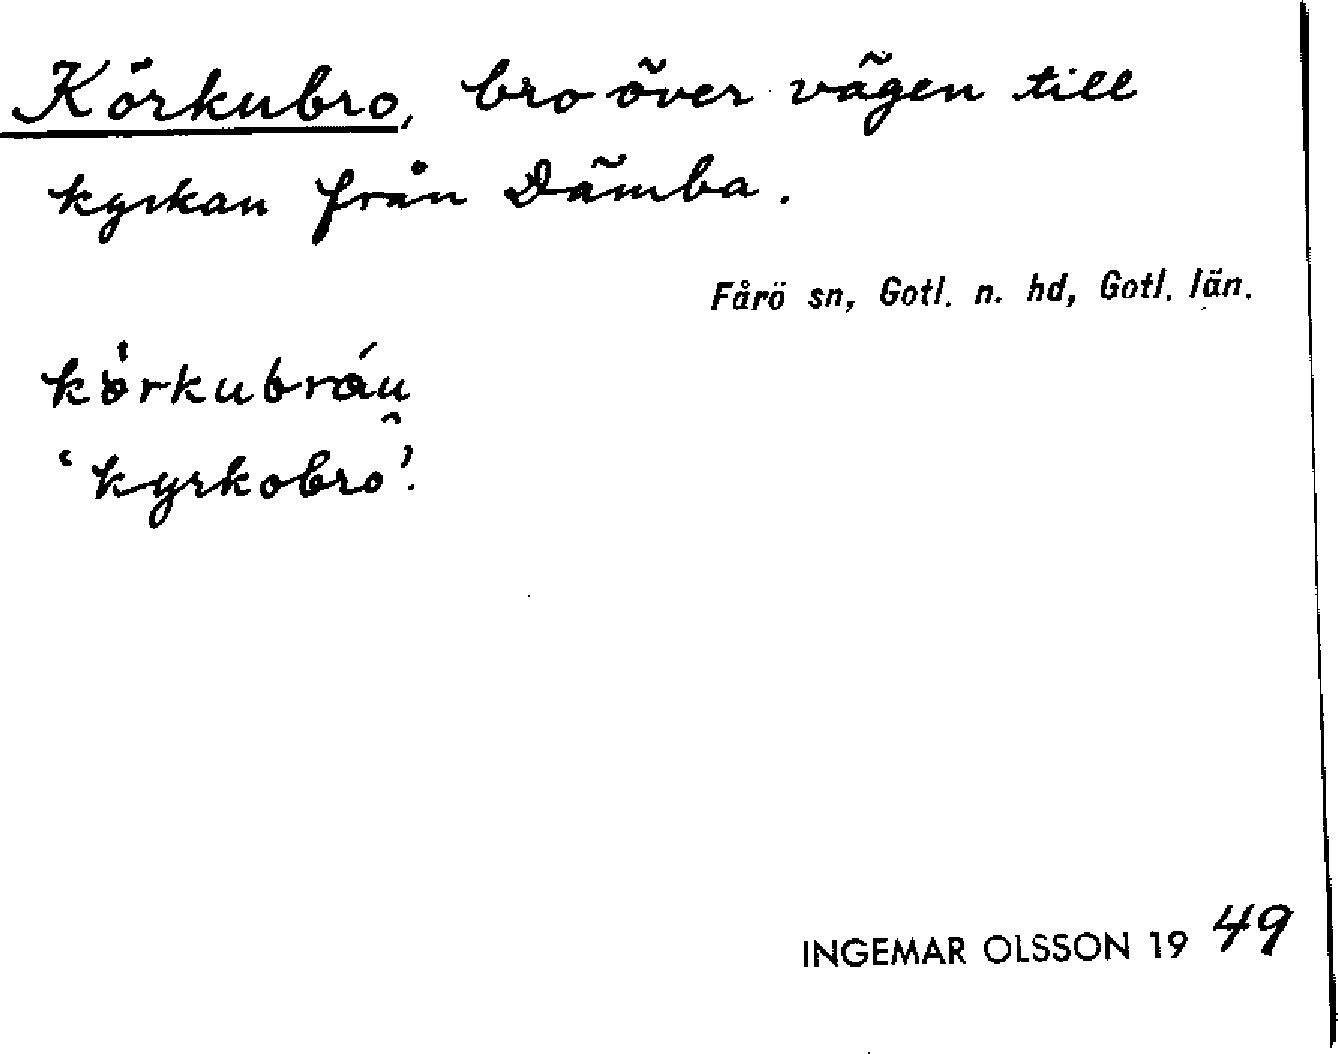 Körkubro, bro över vägen till
kyrkan från Dämba.
Fårö sn, Gotl. n. hd, Gotl. län.
körkubráu̯
‘kyrkobro’.
INGEMAR OLSSON 1949